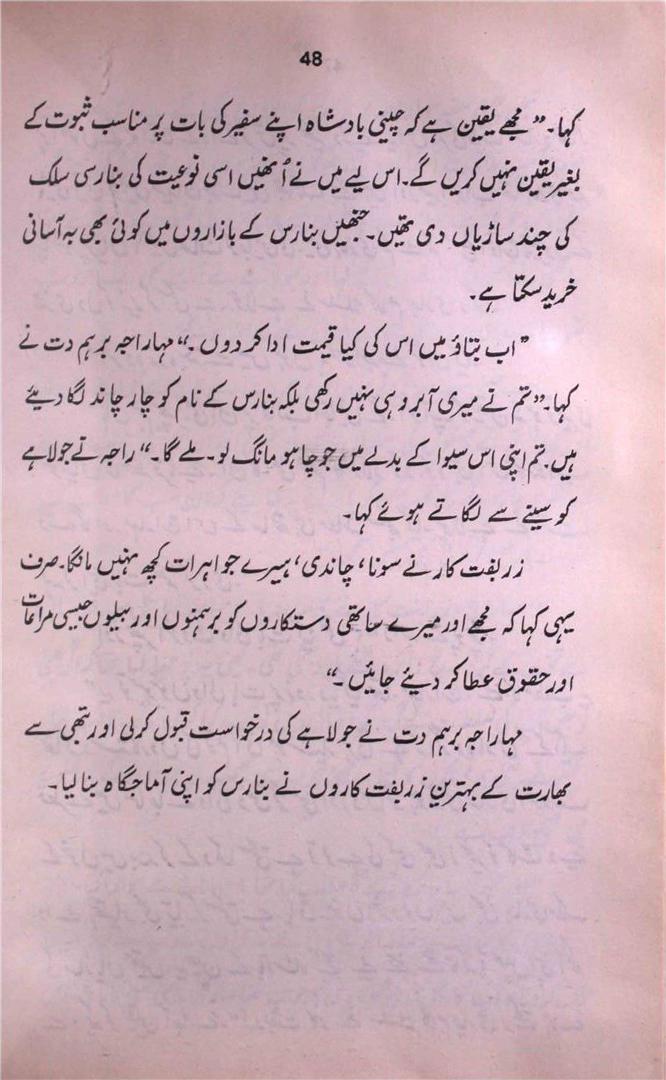 48
کہا۔ ”مجھے یقین ہے کہ چینی بادشاہ اپنے سفیر کی بات پر مناسب ثبوت کے
بغیر یقین نہیں کریں گے۔ اس لیے میں نے اُنھیں اسی نوعیت کی بنارسی سلک
کی چند ساڑیاں دی تھیں۔ جنھیں بنارس کے بازاروں میں کوئی بھی بہ آسانی
خرید سکتا ہے۔
”اب بتاؤ میں اس کی کیا قیمت ادا کر دوں۔“ مہاراجہ برہم دت نے
کہا۔ ”تم نے میری آبرو ہی نہیں رکھی بلکہ بنارس کے نام کو چار چاند لگا دیئے
ہیں۔ تم اپنی اس سیوا کے بدلے میں جو چاہو مانگ لو۔ ملے گا۔“ راجہ نے جولاہے
کو سینے سے لگاتے ہوئے کہا۔
زربفت کار نے سونا، چاندی، ہیرے جواہرات کچھ نہیں مانگا۔ صرف
یہی کہا کہ مجھے اور میرے ساتھی دستکاروں کو برہمنوں اور بیلوں جیسی مراعات
اور حقوق عطا کر دیئے جائیں۔“
مہاراجہ برہم دت نے جولاہے کی درخواست قبول کرلی اور تبھی سے
بھارت کے بہترین زربفت کاروں نے بنارس کو اپنی آماجگاہ بنا لیا۔